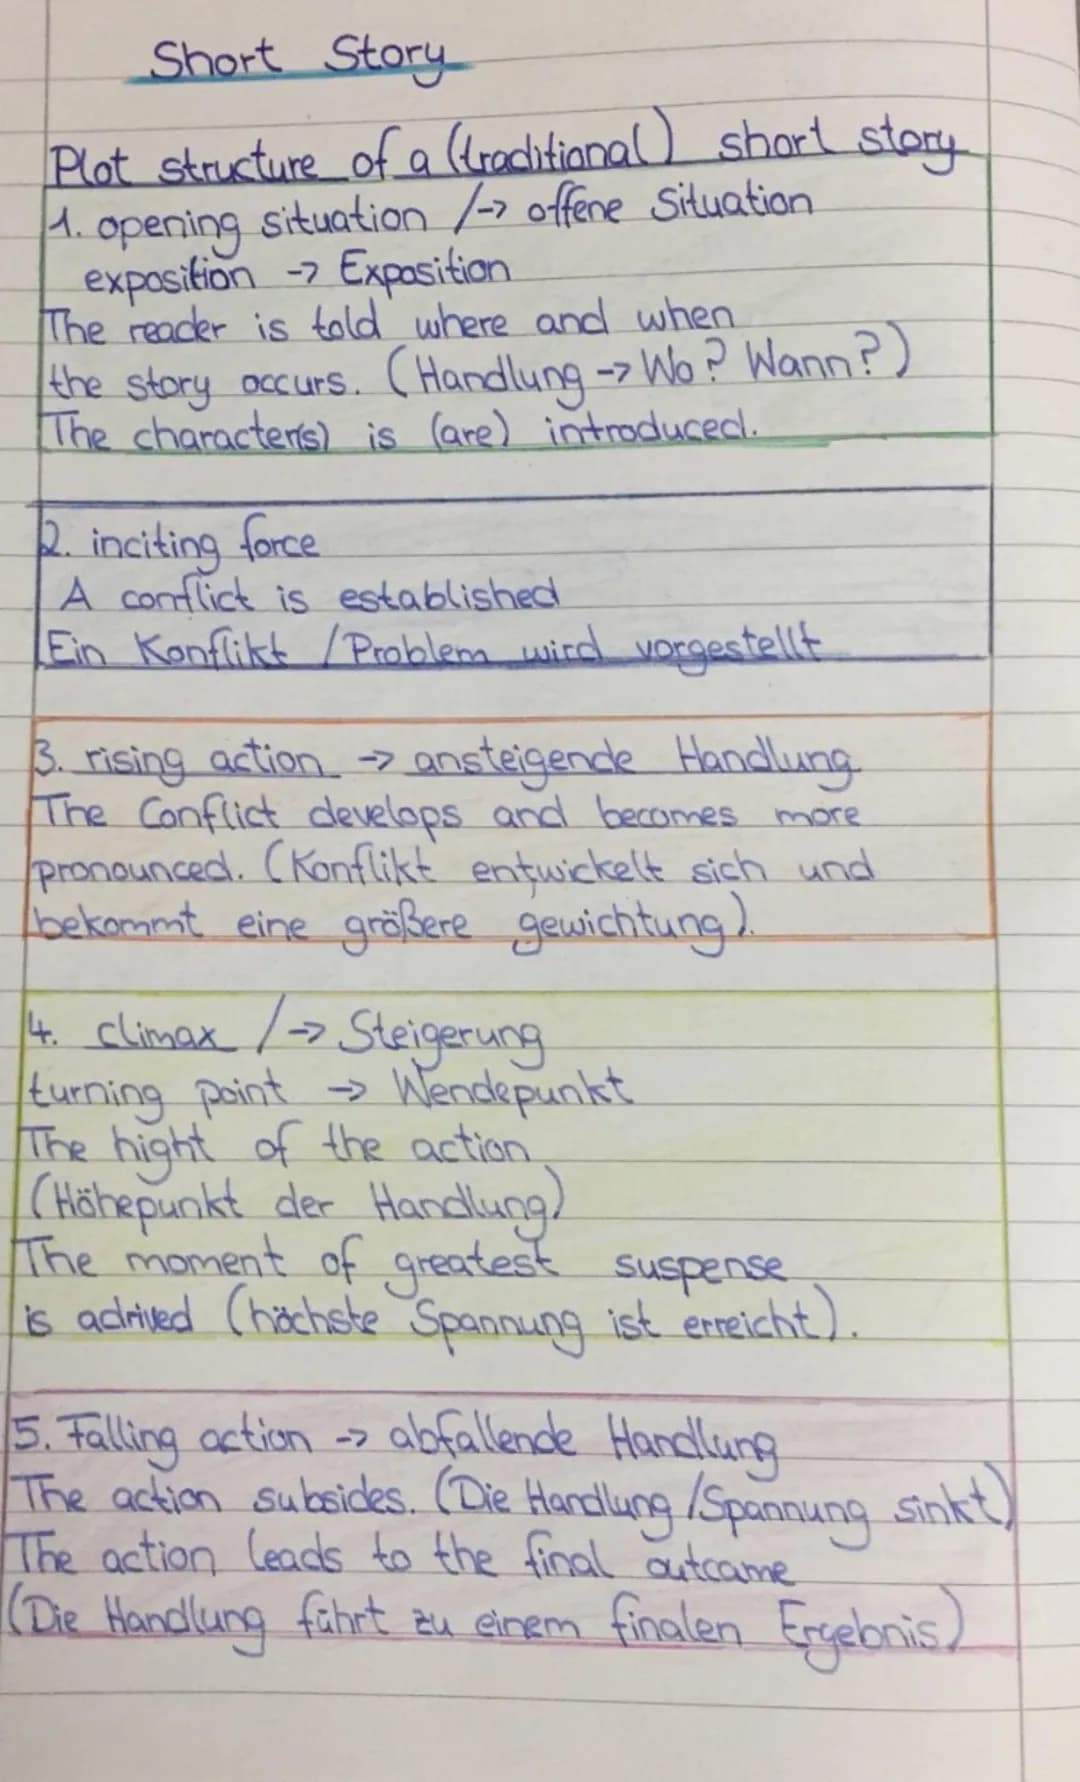 Short Story
Plot structure of a (traditional) short story
1. opening situation /-> offene Situation
exposition -> Exposition
The reader is told where and when
the story occurs. (Handlung -> Wo? Wann?)
The character(s) is (are) introduced.
2. inciting force
A conflict is established
Ein Konflikt / Problem wird vorgestellt
3. rising action -> ansteigende Handlung
The Conflict develops and becomes more
pronounced. (Konflikt entwickelt sich und
bekommt eine größere gewichtung).
4. climax /-> Steigerung
turning point -> Wendepunkt
The hight of the action
(Höhepunkt der Handlung)
The moment of greatest suspense
is adrived (höchste Spannung ist erreicht).
5. Falling action -> abfallende Handlung
The action subsides. (Die Handlung /Spannung sinkt)
The action leads to the final outcame
(Die Handlung führt zu einem finalen Ergebnis)